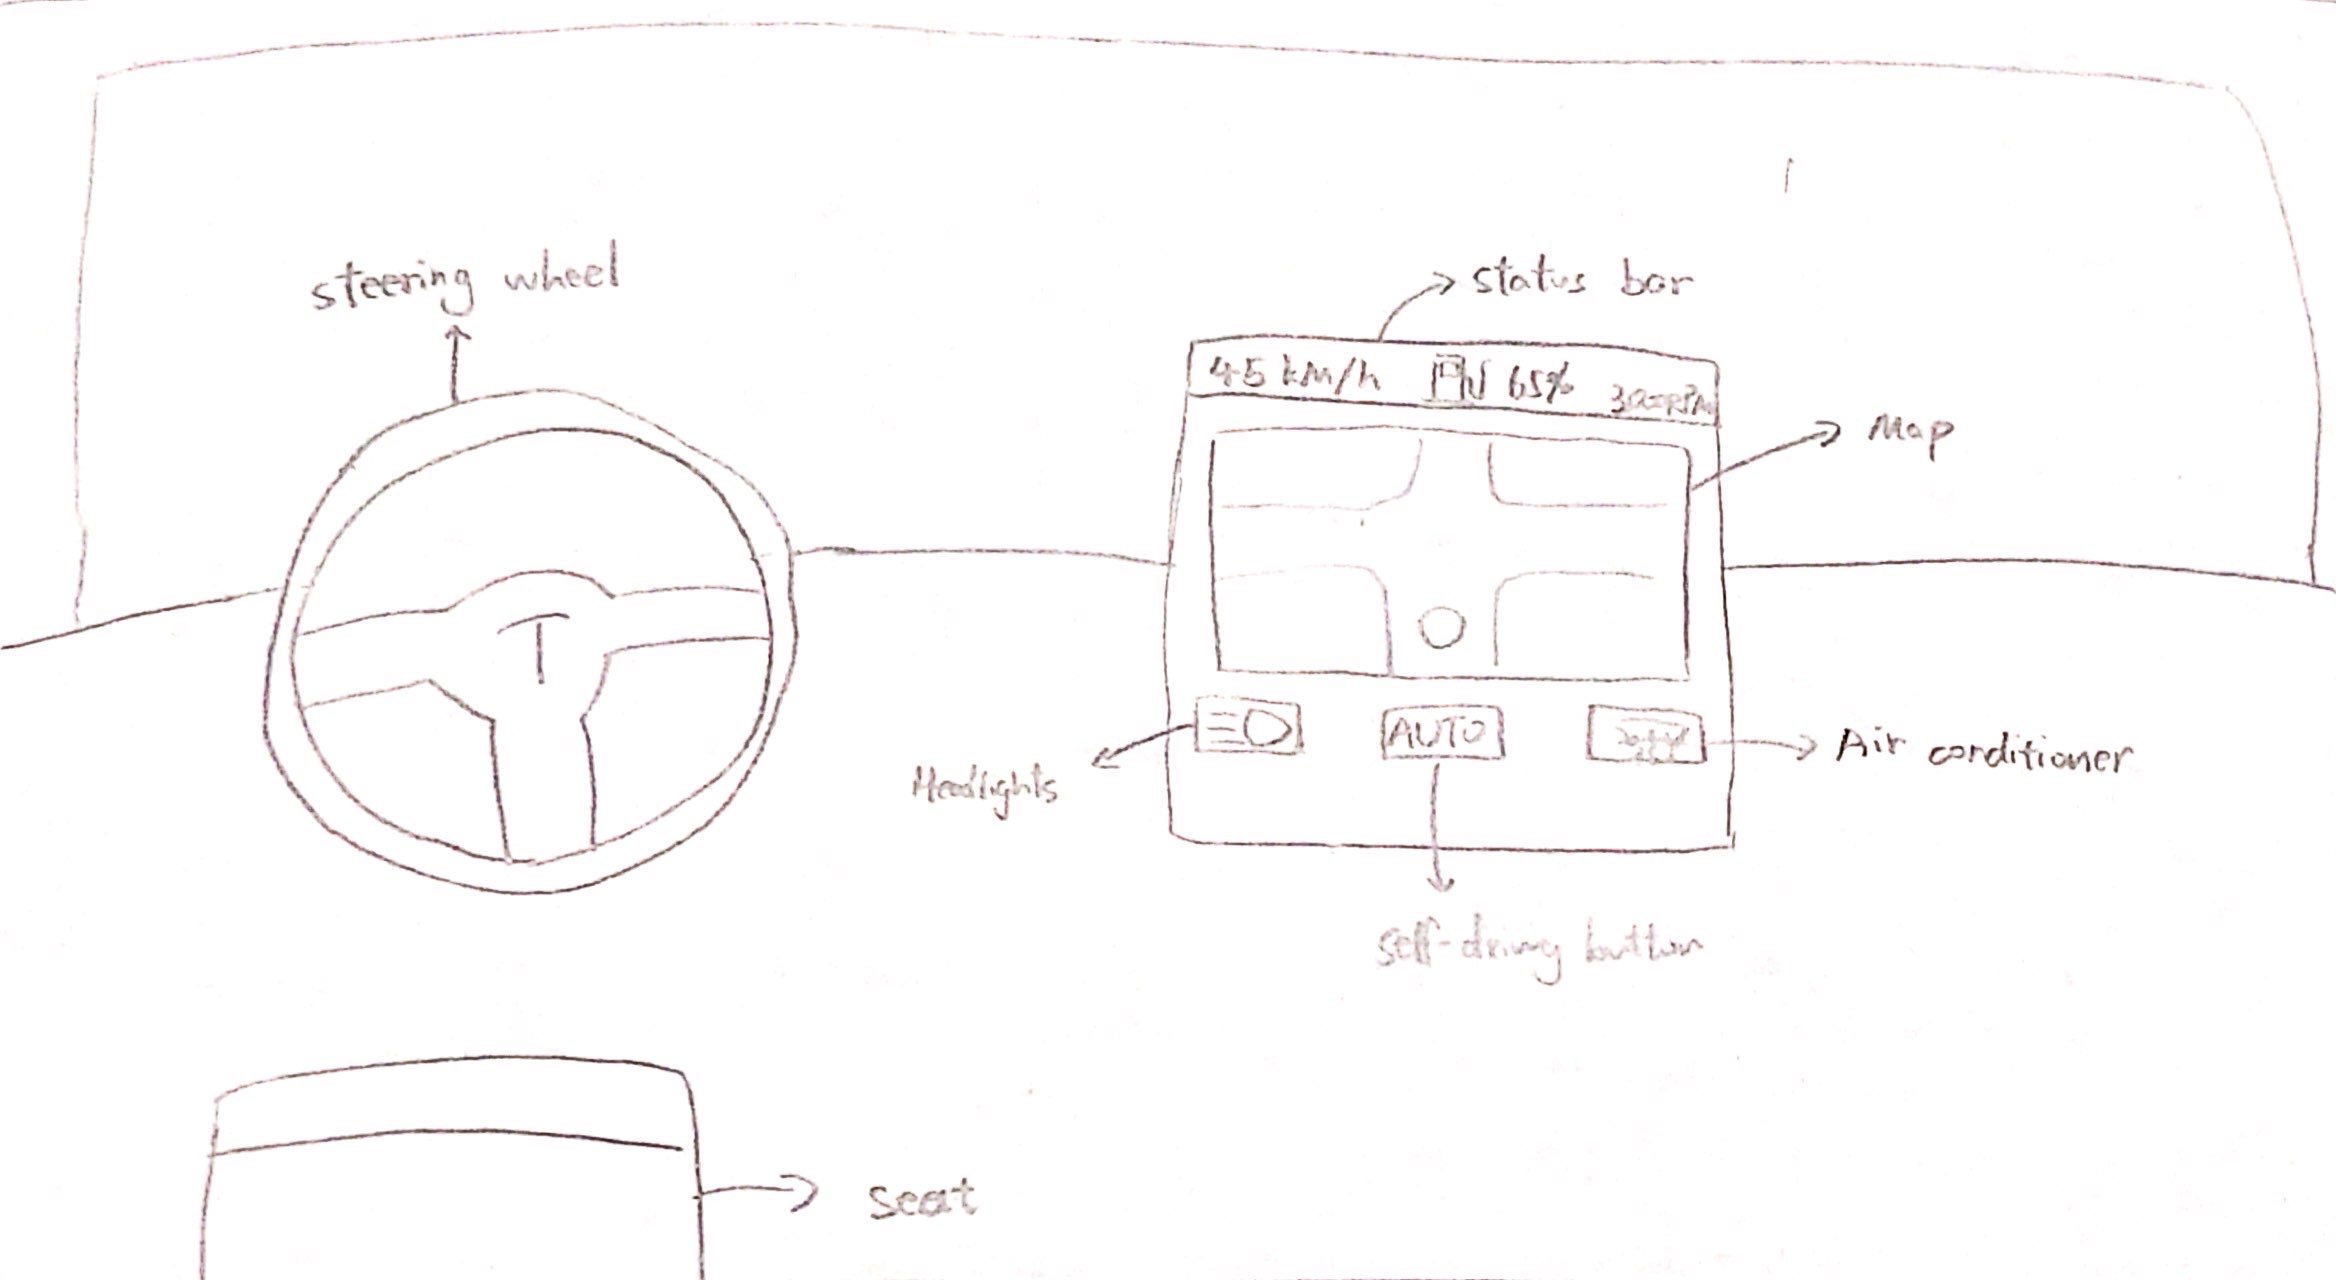 steering wheel
status bar
45 km/h 65%
Map
T
AUTO
Headlights
Air conditioner
self-driving button
seat